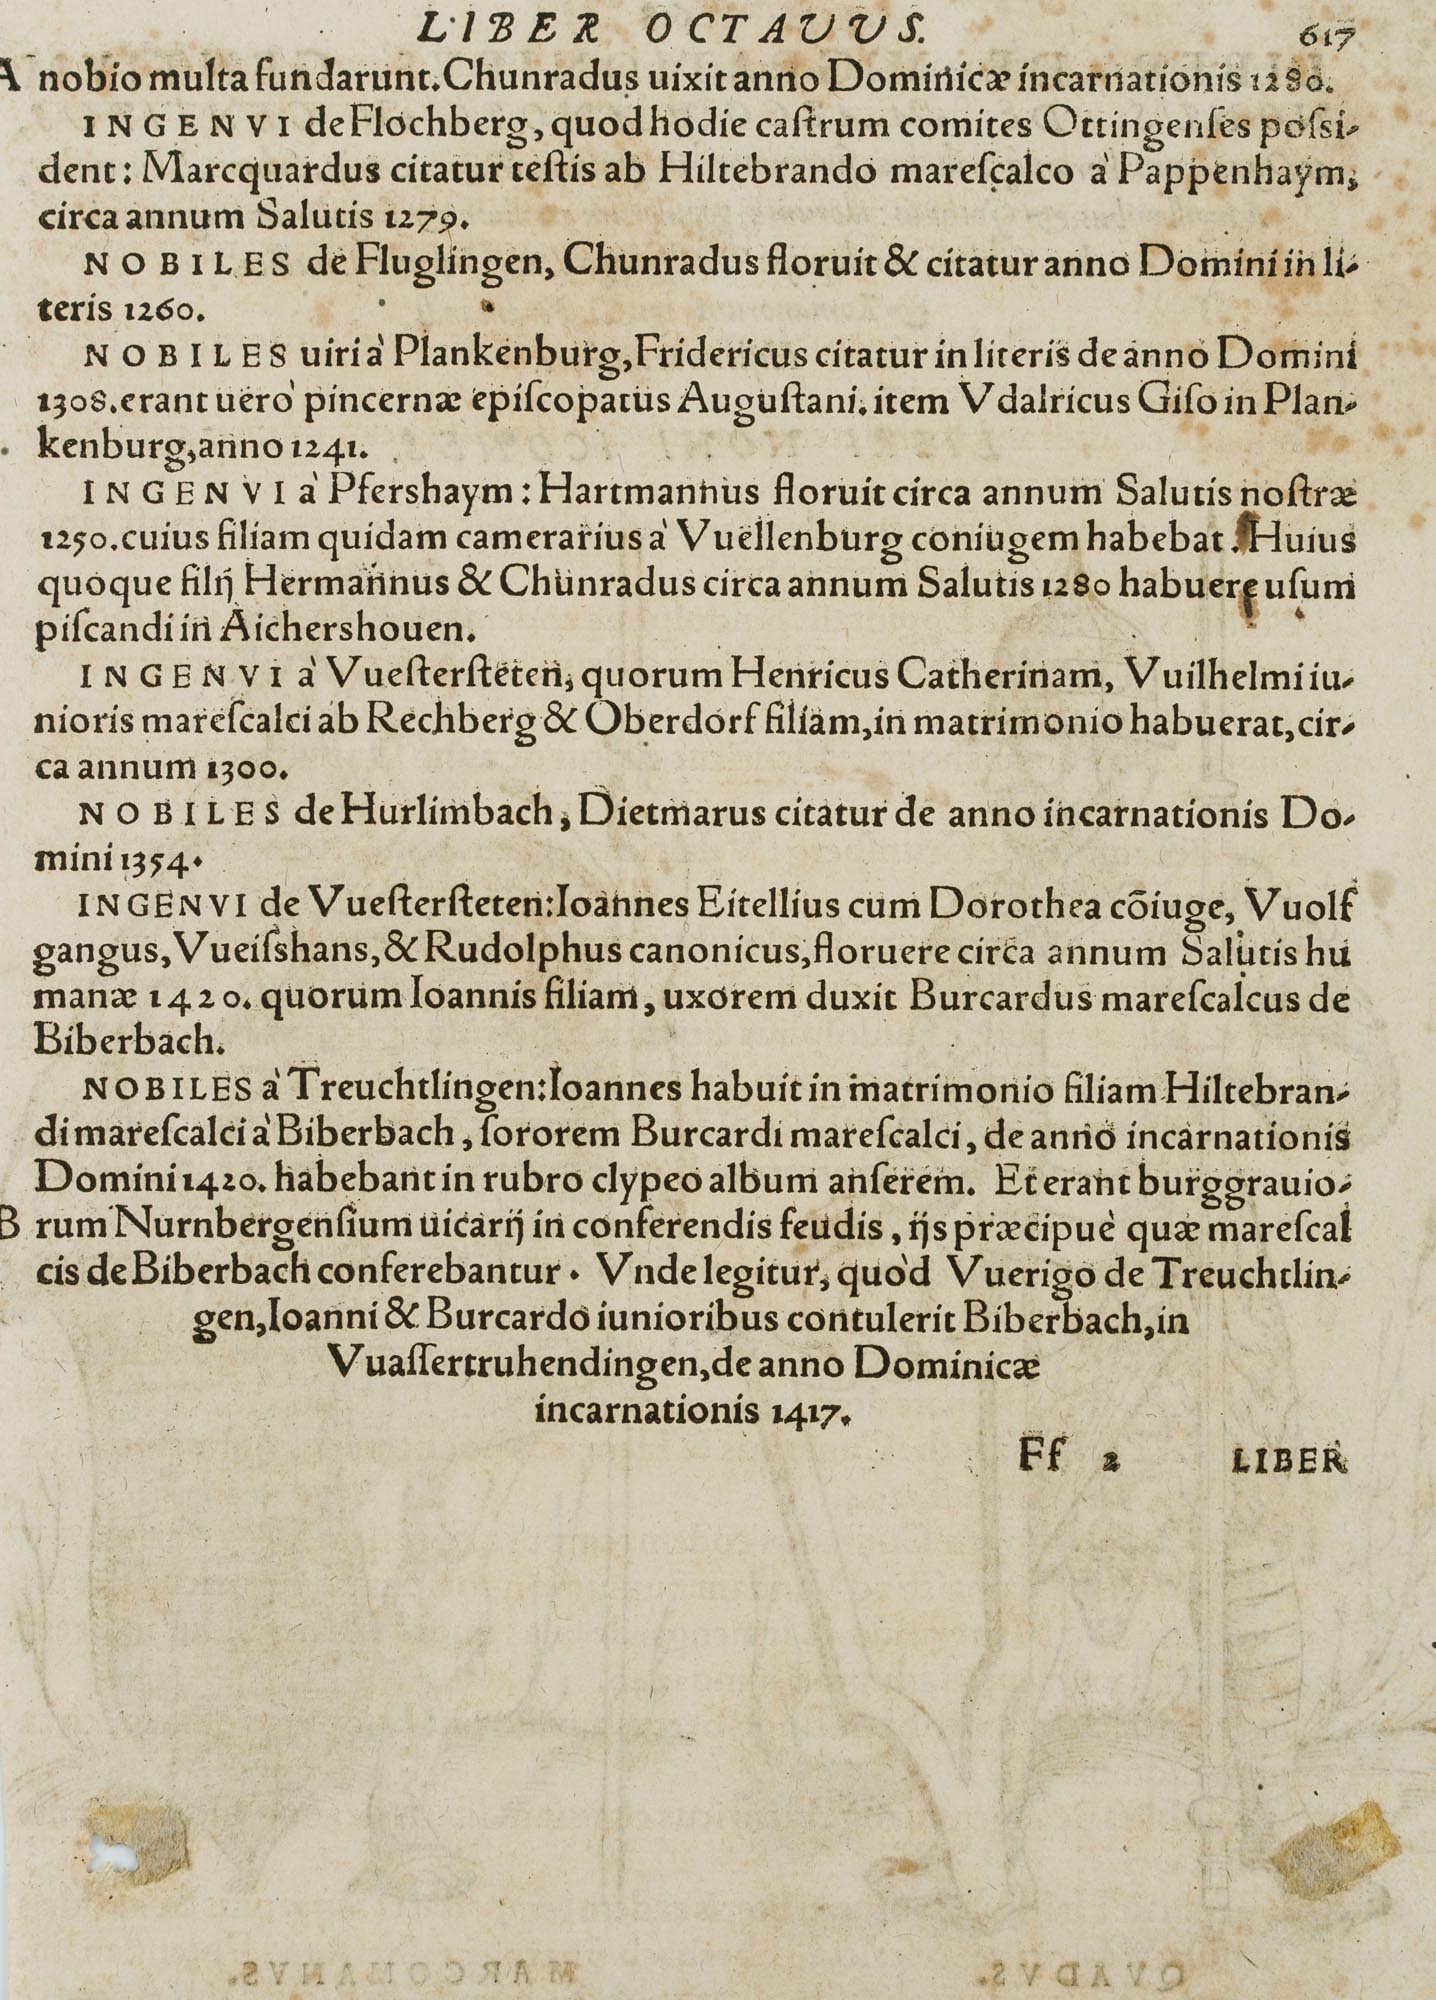 LIBER OCTAVVS. 617
A nobio multa fundarunt. Chunradus uixit anno Dominicæ incarnationis 1280.
INGENVI de Flochberg, quod hodie caſtrum comites Ottingenſes poſsi-
dent: Marcquardus citatur teſtis ab Hiltebrando mareſcalco à Pappenhaym,
circa annum Salutis 1279.
NOBILES de Fluglingen, Chunradus floruit & citatur anno Domini in li-
teris 1260.
NOBILES uiri à Plankenburg, Fridericus citatur in literis de anno Domini
1308. erant uerò pincernæ epiſcopatus Auguſtani. item Vdalricus Giſo in Plan-
kenburg, anno 1241.
INGENVI à Pfershaym: Hartmannus floruit circa annum Salutis noſtræ
1250. cuius filiam quidam camerarius à Vuellenburg coniugem habebat. Huius
quoque filij Hermannus & Chunradus circa annum Salutis 1280 habuere uſum
piſcandi in Aichershouen.
INGENVI à Vueſterſteten, quorum Henricus Catherinam, Vuilhelmi iu-
nioris mareſcalci ab Rechberg & Oberdorf filiam, in matrimonio habuerat, cir-
ca annum 1300.
NOBILES de Hurlimbach, Dietmarus citatur de anno incarnationis Do-
mini 1354.
INGENVI de Vueſterſteten: Ioannes Eitellius cum Dorothea cõiuge, Vuolf
gangus, Vueiſshans, & Rudolphus canonicus, floruere circa annum Salutis hu
manæ 1420. quorum Ioannis filiam, uxorem duxit Burcardus mareſcalcus de
Biberbach.
NOBILES à Treuchtlingen: Ioannes habuit in matrimonio filiam Hiltebran-
di mareſcalci à Biberbach, ſororem Burcardi mareſcalci, de anno incarnationis
Domini 1420. habebant in rubro clypeo album anſerem. Et erant burggrauio-
B rum Nurnbergenſium uicarij in conferendis feudis, ijs præcipuè quæ mareſcal
cis de Biberbach conferebantur. Vnde legitur, quòd Vuerigo de Treuchtlin-
gen, Ioanni & Burcardo iunioribus contulerit Biberbach, in
Vuaſſertruhendingen, de anno Dominicæ
incarnationis 1417.
Ff 2 LIBER
MARCOMANVS. QVADVS.